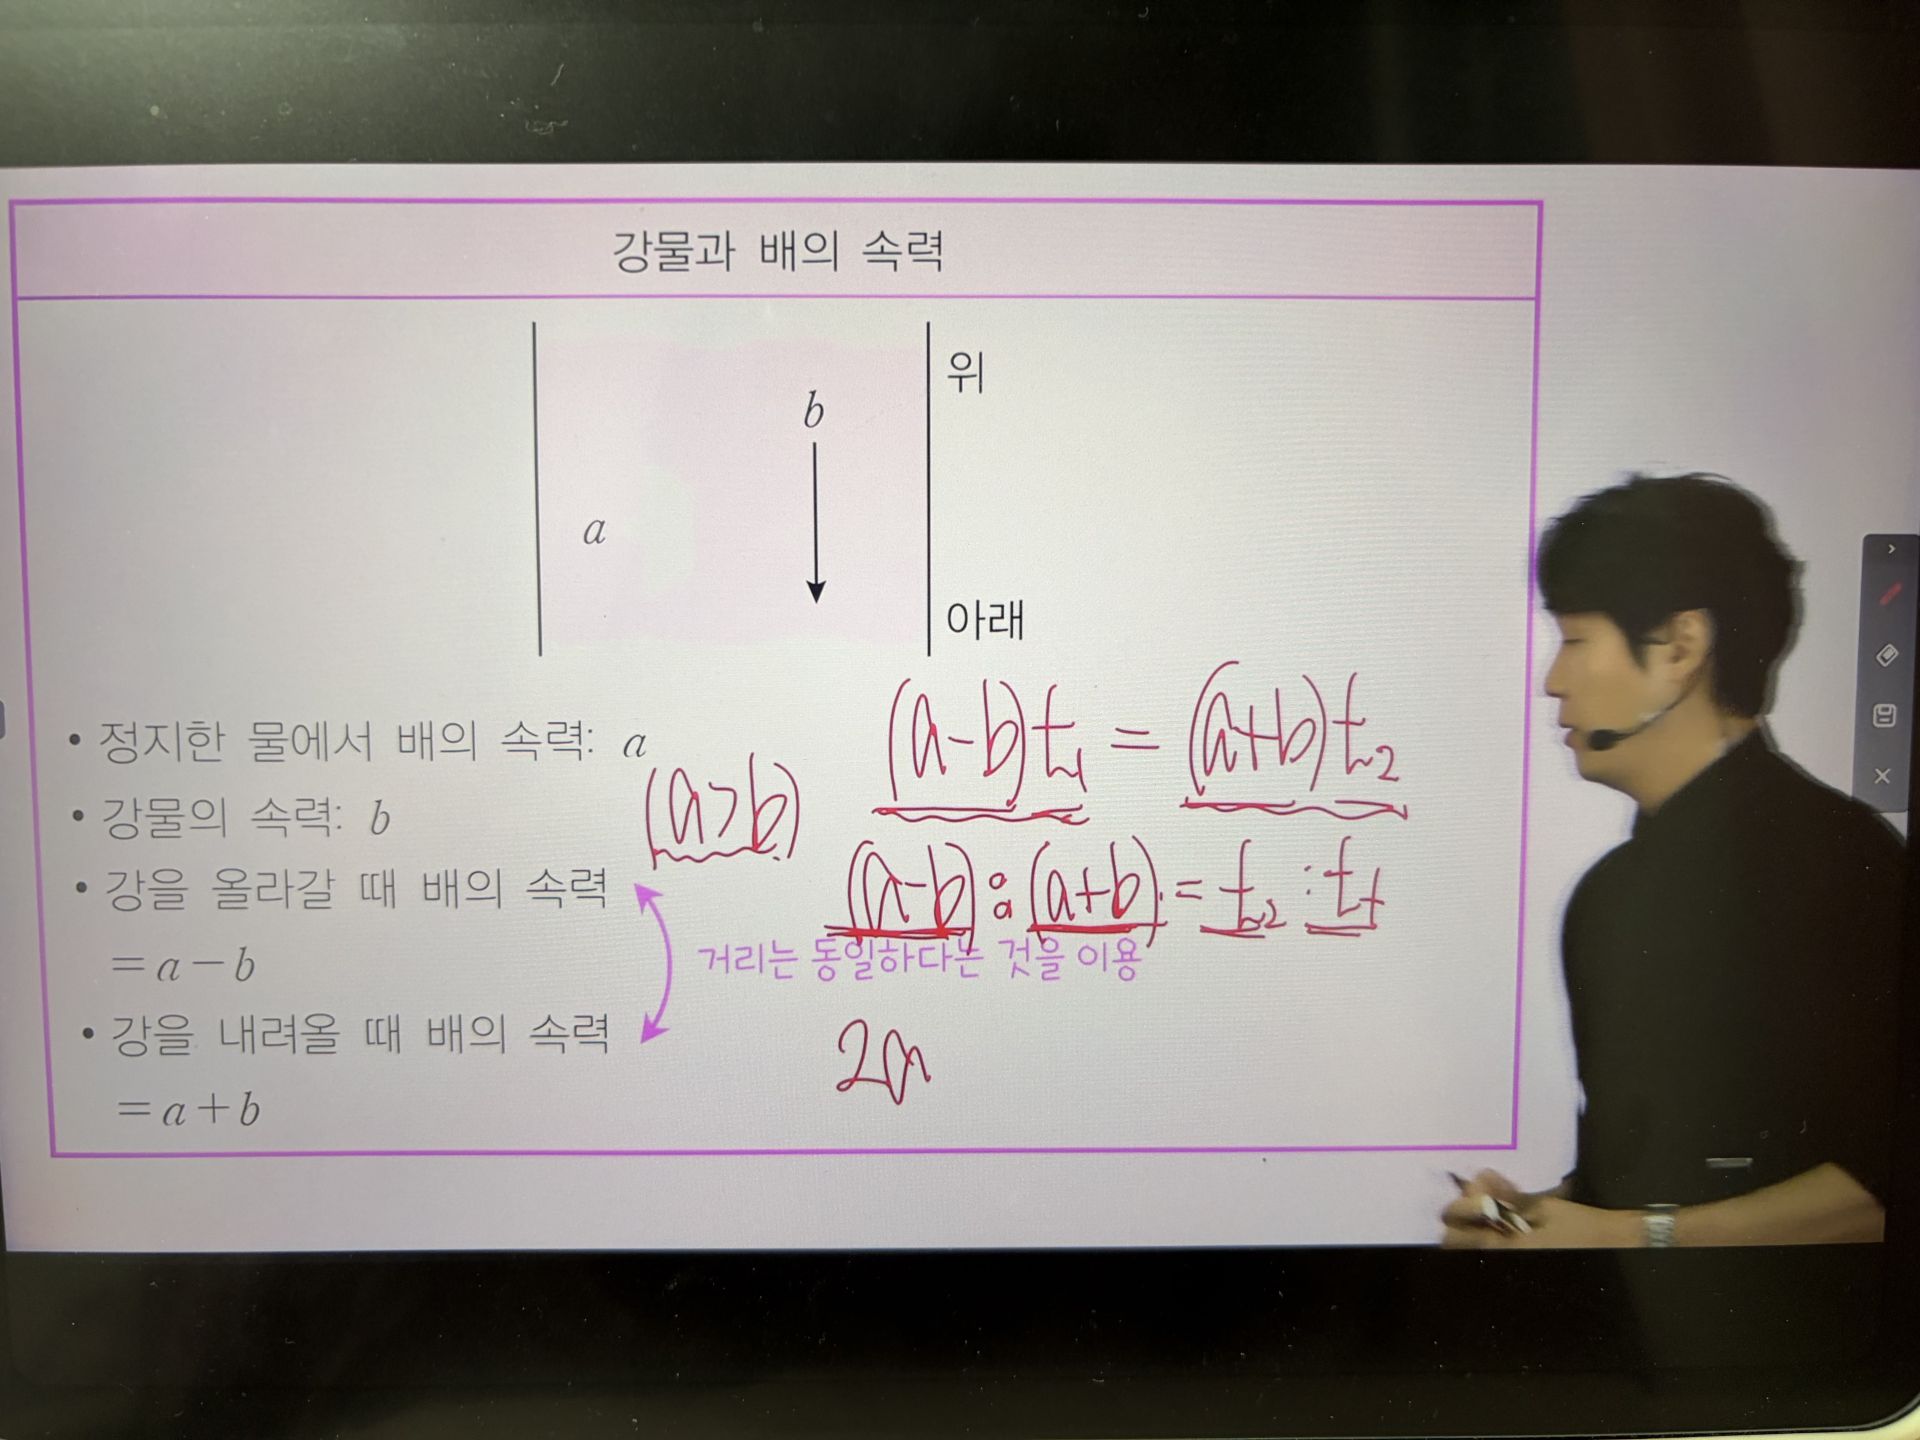 강물과 배의 속력
위
b
a
아래
• 정지한 물에서 배의 속력: a
(a>b)
(a-b)t₁ = (a+b)t₂
• 강물의 속력: b
(a-b) : (a+b) = t₂ : t₁
• 강을 올라갈 때 배의 속력
=a-b
거리는 동일하다는 것을 이용
• 강을 내려올 때 배의 속력
=a+b
2a